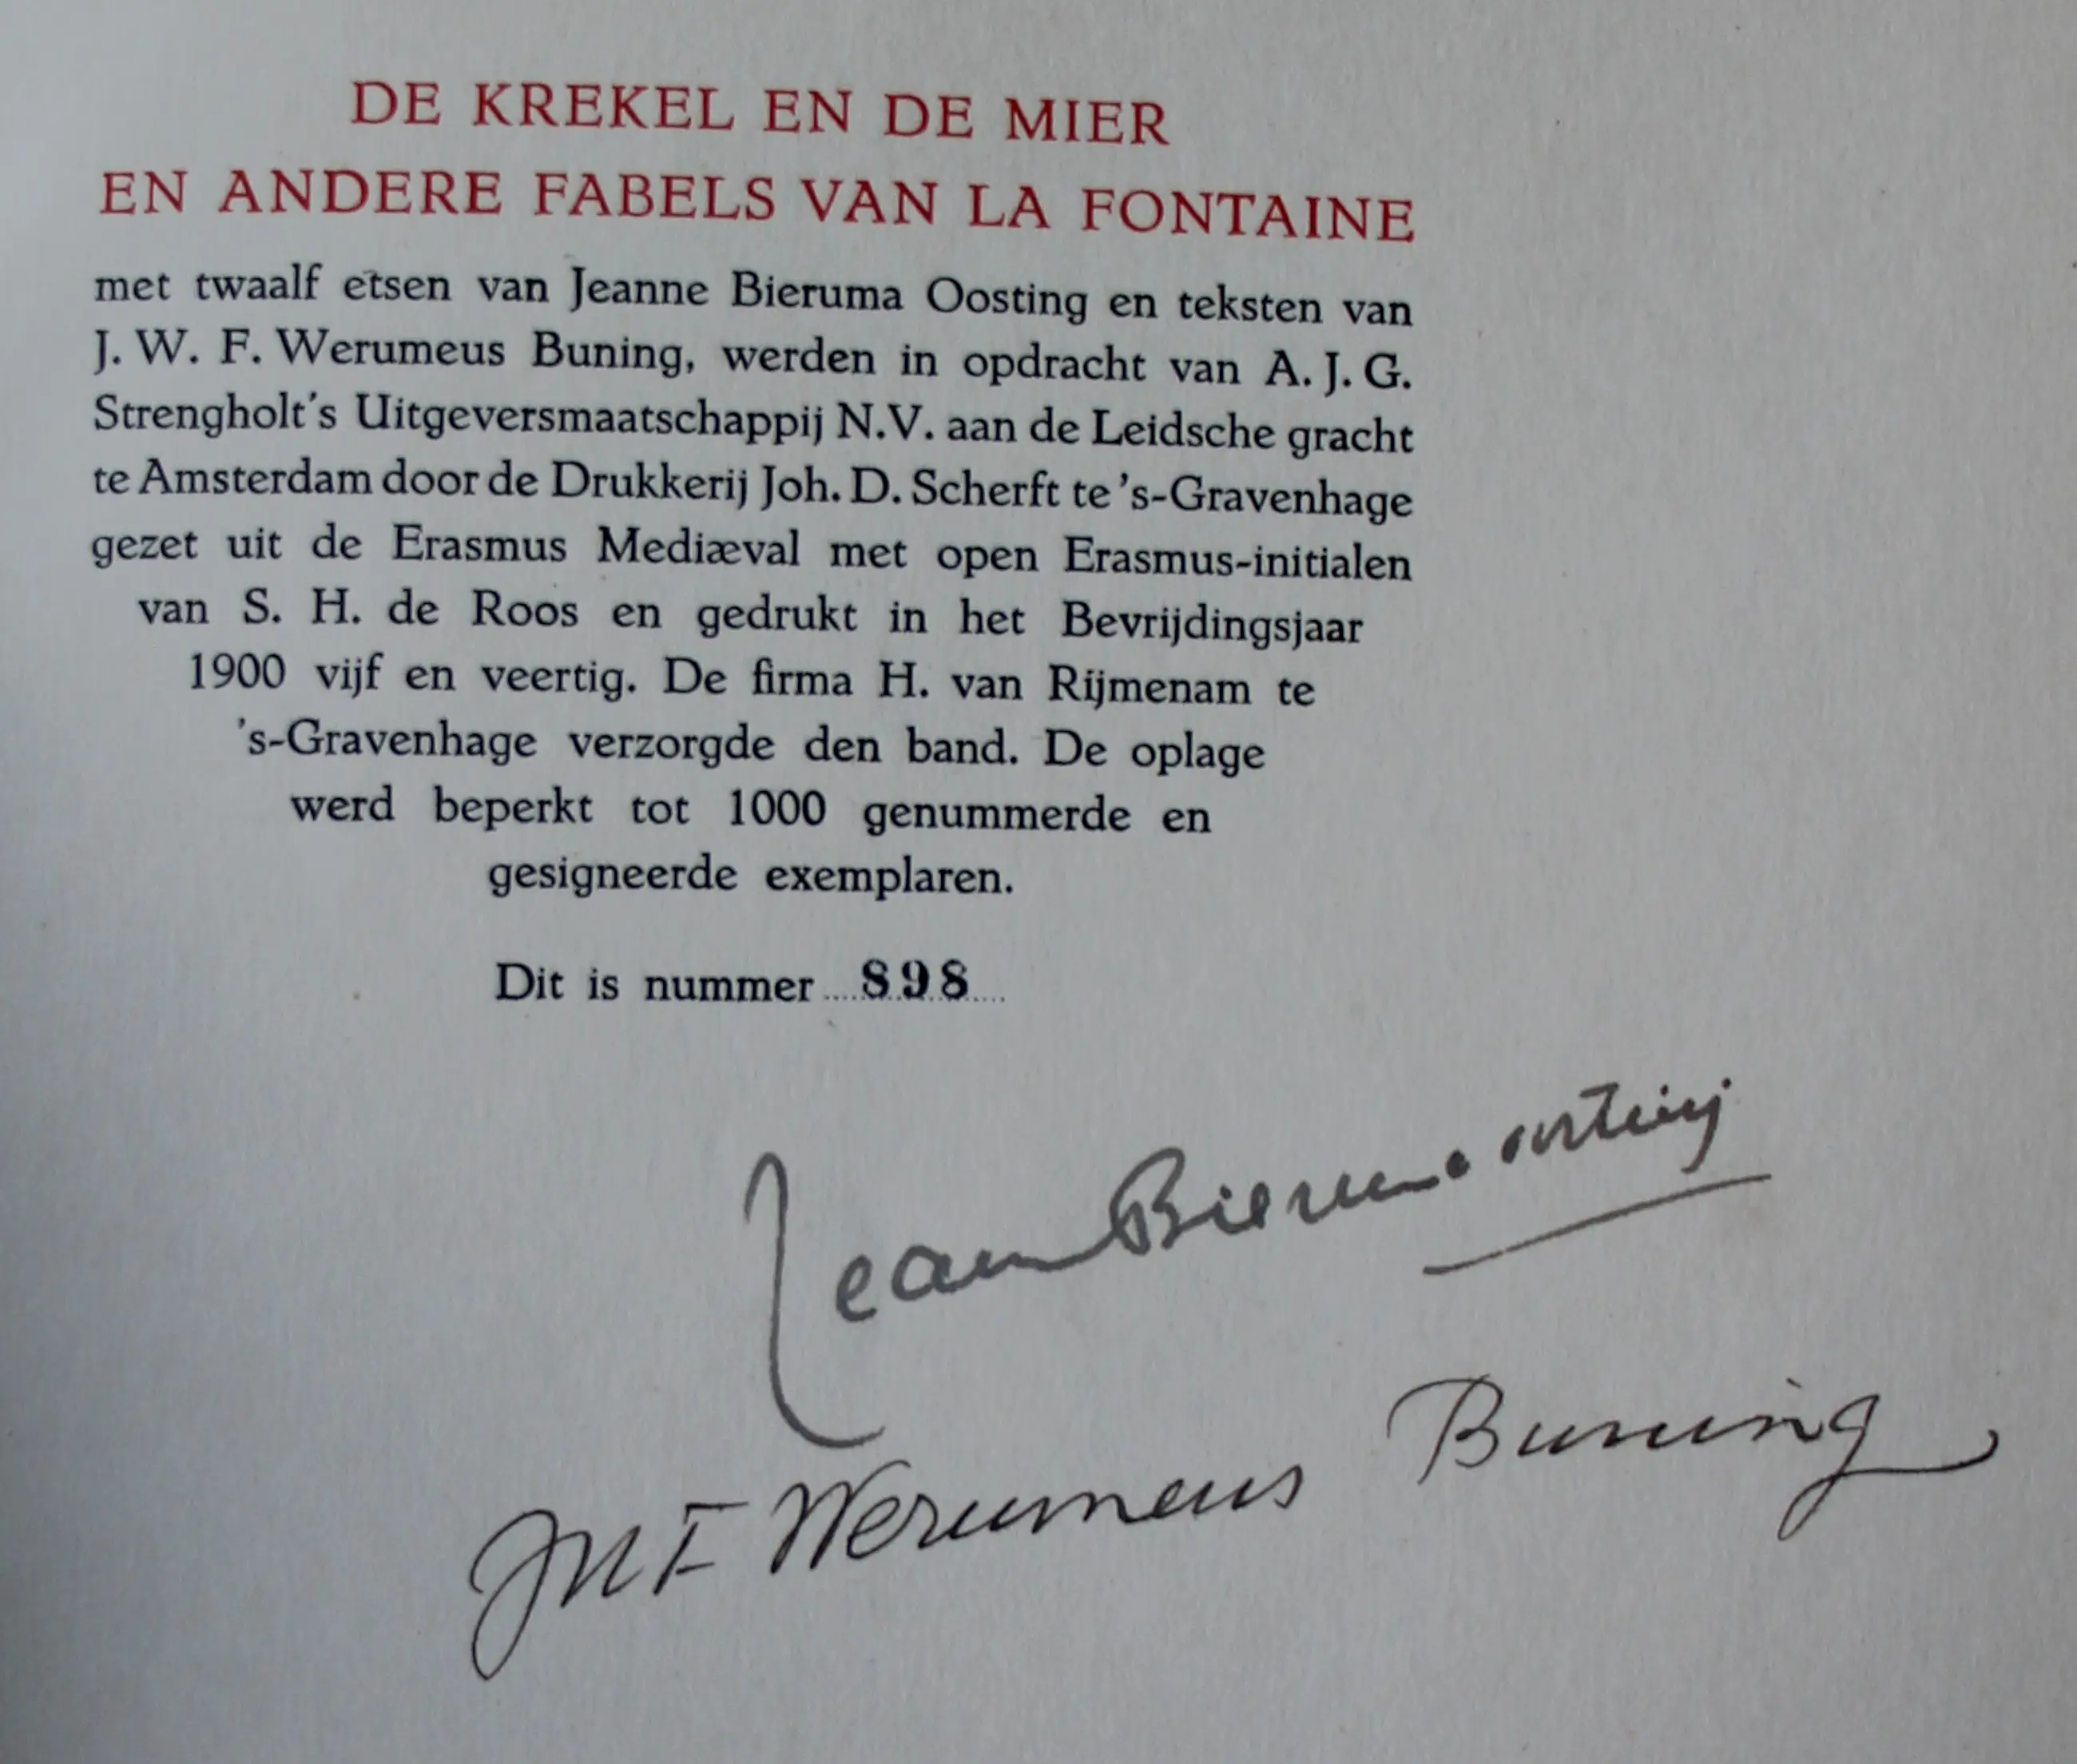 DE KREKEL EN DE MIER
EN ANDERE FABELS VAN LA FONTAINE
met twaalf etsen van Jeanne Bieruma Oosting en teksten van
J. W. F. Werumeus Buning, werden in opdracht van A. J. G.
Strengholt's Uitgeversmaatschappij N.V. aan de Leidsche gracht
te Amsterdam door de Drukkerij Joh. D. Scherft te 's-Gravenhage
gezet uit de Erasmus Mediæval met open Erasmus-initialen
van S. H. de Roos en gedrukt in het Bevrijdingsjaar
1900 vijf en veertig. De firma H. van Rijmenam te
's-Gravenhage verzorgde den band. De oplage
werd beperkt tot 1000 genummerde en
gesigneerde exemplaren.
Dit is nummer 898
Jeanne Bieruma Oosting
JWF Werumeus Buning